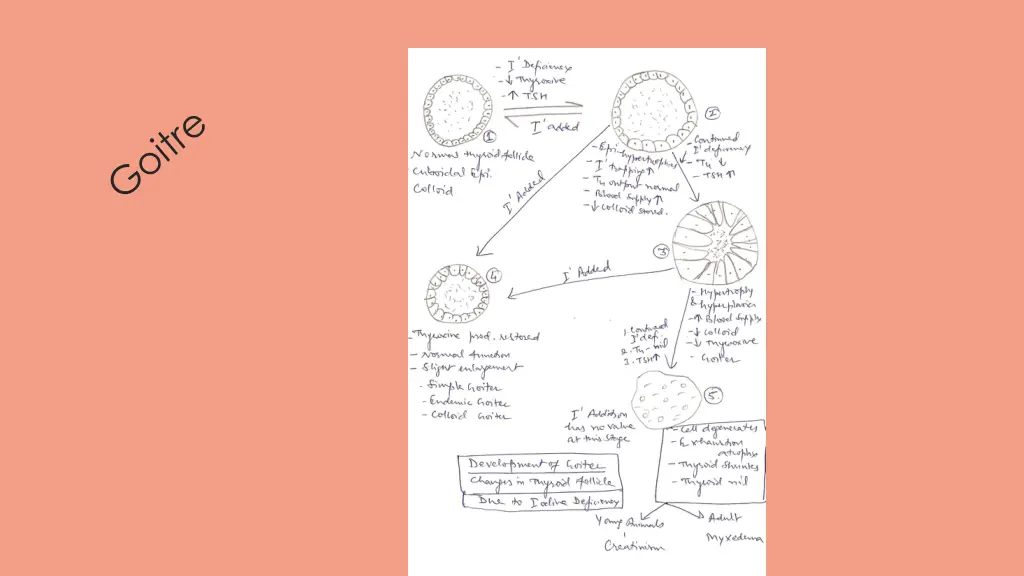 Goitre
- I' Deficiency
- ↓ Thyroxive
- ↑ TSH
I' added
①
Normal thyroid follicle
Cuboidal Epi.
Colloid
②
- Epi. hypertrophies
- I' trapping ↑
- T4 output normal
- Blood Supply ↑
- ↓ Colloid stored.
- Continued
I' deficiency
- T4 ↓
- TSH ↑
I' Added
③
I' Added
④
- Thyroxine prod. restored
- Normal function
- Slight enlargement
- Simple Goiter
- Endemic Goiter
- Colloid Goiter
- Hypertrophy
& hyperplasia
- ↑ Blood Supply
- ↓ Colloid
- ↓ Thyroxive
- Goiter
1. Continued
I' defi.
2. T4 - nil
3. TSH ↑
⑤
I' Addition
has no value
at this stage
- Cell degenerates
- Exhaustion
atrophy
- Thyroid Shrinks
- Thyroid nil
Development of Goiter
Changes in Thyroid follicle
Due to Iodine Deficiency
Young Animals
Creatinism
Adult
Myxedema